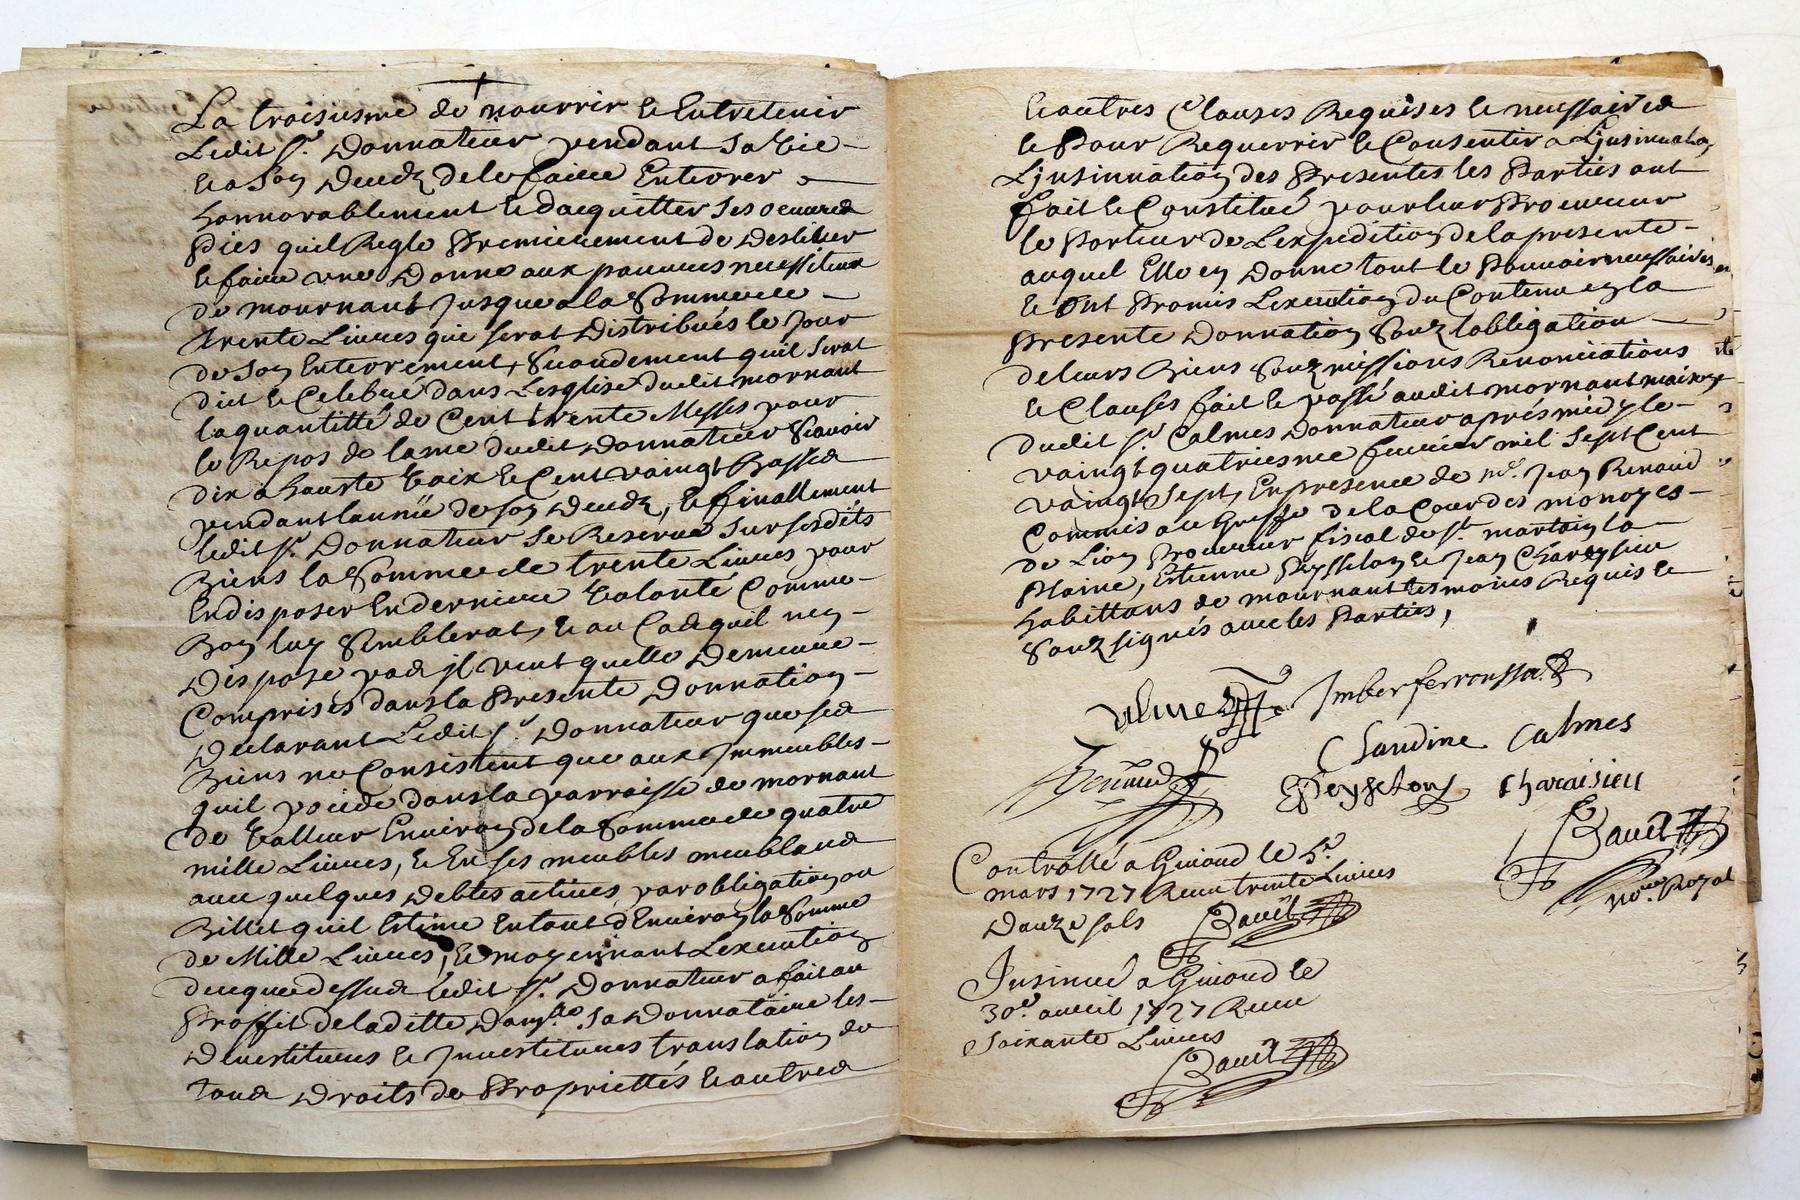 La troisiesme de nourrir et Entretenir
Ledit Sr. Donnateur pendant sa vie
et a son deceds de le faire Enterrer
honnorablement et dacquitter ses oeuvres
Pies quil Regle Premierement de deslivrer
et faire une Donne aux pauvres necessiteux
de mournant jusques a la Somme de
trente Livres qui serat distribués le jour
de son Enterrement, Secondement quil serat
dict et Celebré dans Lesglise dudit mornant
la quantitté de Cent trente Messes pour
le Repos de lame dudit donnateur Scavoir
dix a hauste voix et Cent vaingt Basses
pendant lannée de son deceds, et finallement
ledit Sr. Donnateur se Reserve sur sesdits
Biens la Somme de trente Livres pour
En disposer En derniere volonté Comme
Bon luy Semblerat, et au Cas quil nen
dispose pas jl veut quelle demeure
Comprises dans la Presente donnation
declarant Ledit Sr. Donnateur que ses
Biens ne Consistent que aux Jmmeubles
quil posede dans la parroisse de mornant
de valleur Environ de la Somme de quatre
mille Livres, et En ses meubles meublans
avec quelques debtes actives par obligation ou
Billet quil Estime En tout d'Environ la Somme
de Mille Livres, et moyennant Lexecution
de ce que dessus ledit Sr. Donnateur a fait au
Proffit de laditte damlle. sa donnataire les
devestitures et Jnvestitures translation de
tous droits de Propriettés et autres
et autres Clauses Requises et necessaires
et Pour Requerrir et Consentir a Ljnsinuaton
Ljnsinuation des Presentes les Parties ont
fait et Constitué pour leur Procureur
le Porteur de Lexpedition de la presente
auquel Elle en donne tout le Pouvoir necessaires
et Ont Promis Lexecution du Contenu en la
Presente donnation Souz lobligation
de leurs Biens Souzmissions Renonciations
et Clauses fait et passé audit mornant maison
dudit Sr. Calmes donnateur aprés midy le
vaingt quatriesme fevrier mil Sept Cent
vaingt Sept, En presence de me. Jean Renaud
Commis au Greffe de la Cour des monoyes
de Lion Procureur fiscal de St. martain la
Plaine, Estienne Peysselon et Jean Charezieu
habittans de mournant tesmoins Requis et
Souzsignés avec les Parties,
Imber ferroussat
Claudine Calmes
Renaud Peysselon Charaisieu
Bauet
Nore. Royal
Controllé a Givord le 5e.
mars 1727 Receu trente Livres
douze sols Bauet
Jnsinué a Givord le
30e. avril 1727 Receu
Soixante Livres
Bauet